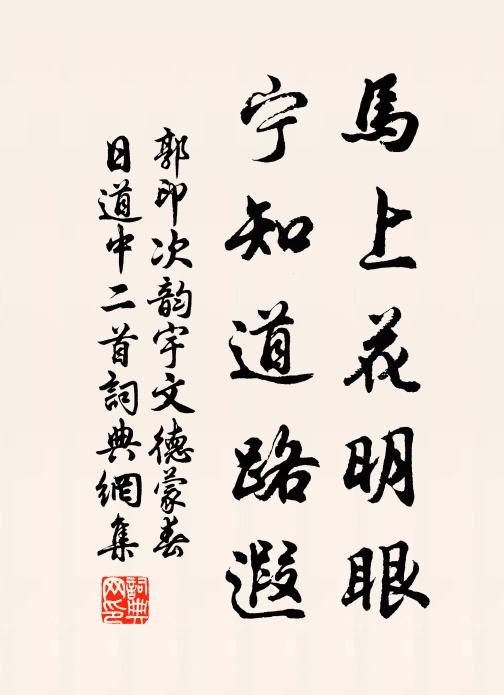 馬上花明眼
宁知道路遐
郭印次韵宇文德蒙春
日道中二首詞典網集
詞典网印